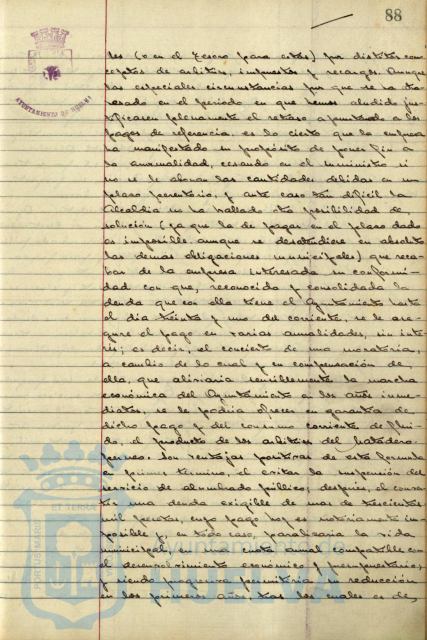 88
AYUNTAMIENTO DE HUELVA
les (o en el Tesoro para estas) por distintos con-
ceptos de arbitrios, impuestos y recargos. Aunque
las especiales circunstancias por que se ha atra-
vesado en el periodo en que hemos aludido jus-
tificasen plenamente el retraso apuntado a los
pagos de referencia, es lo cierto que la empresa
ha manifestado su propósito de poner fin a
la anormalidad, cesando en el suministro si
no se le abonan las cantidades debidas en un
plazo perentorio, y ante caso tan difícil la
Alcaldia no ha hallado otra posibilidad de
solución (ya que la de pagar en el plazo dado
es imposible aunque se desatendiere en absoluto
las demas obligaciones municipales) que reca-
bar de la empresa interesada su conformi-
dad con que, reconocida y consolidada la
deuda que con ella tiene el Ayuntamiento hasta
el dia treinta y uno del corriente, se le ase-
gure el pago en varias anualidades, sin inte-
rés; es decir, el concierto de una moratoria,
a cambio de lo cual y en compensación de
ella, que aliviaria sensiblemente la marcha
económica del Ayuntamiento en los años inme-
diatos, se le podria ofrecer en garantia de
dicho pago y del consumo corriente de flui-
do, el producto de los arbitrios del Matadero.
Son ventajas positivas de esta formula
en primer término, el evitar la suspensión del
servicio de alumbrado público; despues, el conver-
tir una deuda exigible de mas de trescientas
mil pesetas, cuyo pago hoy es notoriamente im-
posible y, en todo caso, paralizaria la vida
municipal, en una cuota anual compatible con
el desenvolvimiento económico y presupuestario;
y siendo progresiva permitiria su reducción
en los primeros años, tras los cuales es de
PORTUS MARIS ET TERRAE
Ayuntamiento de
HUELVA